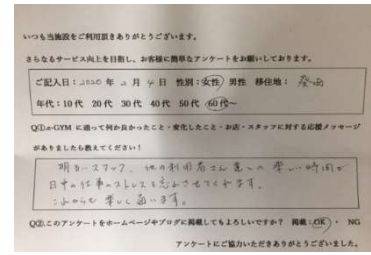 いつも当施設をご利用頂きありがとうございます。
さらなるサービス向上を目指し、お客様に簡単なアンケートをお願いしております。
ご記入日:2020年 2月 4日 性別:女性/男性 移住地: 葵西
年代:10代 20代 30代 40代 50代 60代~
Q①.e-GYM に通って何か良かったこと・変化したこと・お店・スタッフに対する応援メッセージ
がありましたら教えてください!
明るいスタッフ、他の利用者さん達との楽しい時間が
日中の仕事のストレスを忘れさせてくれます。
これからも楽しく通います。
Q②.このアンケートをホームページやブログに掲載してもよろしいですか? 掲載:OK ・ NG
アンケートにご協力いただきありがとうございました。